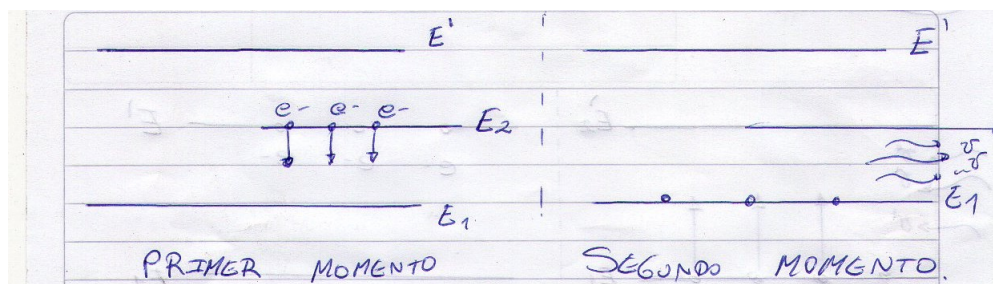 E' E'
e- e- e- E2
E1 E1
PRIMER MOMENTO SEGUNDO MOMENTO.